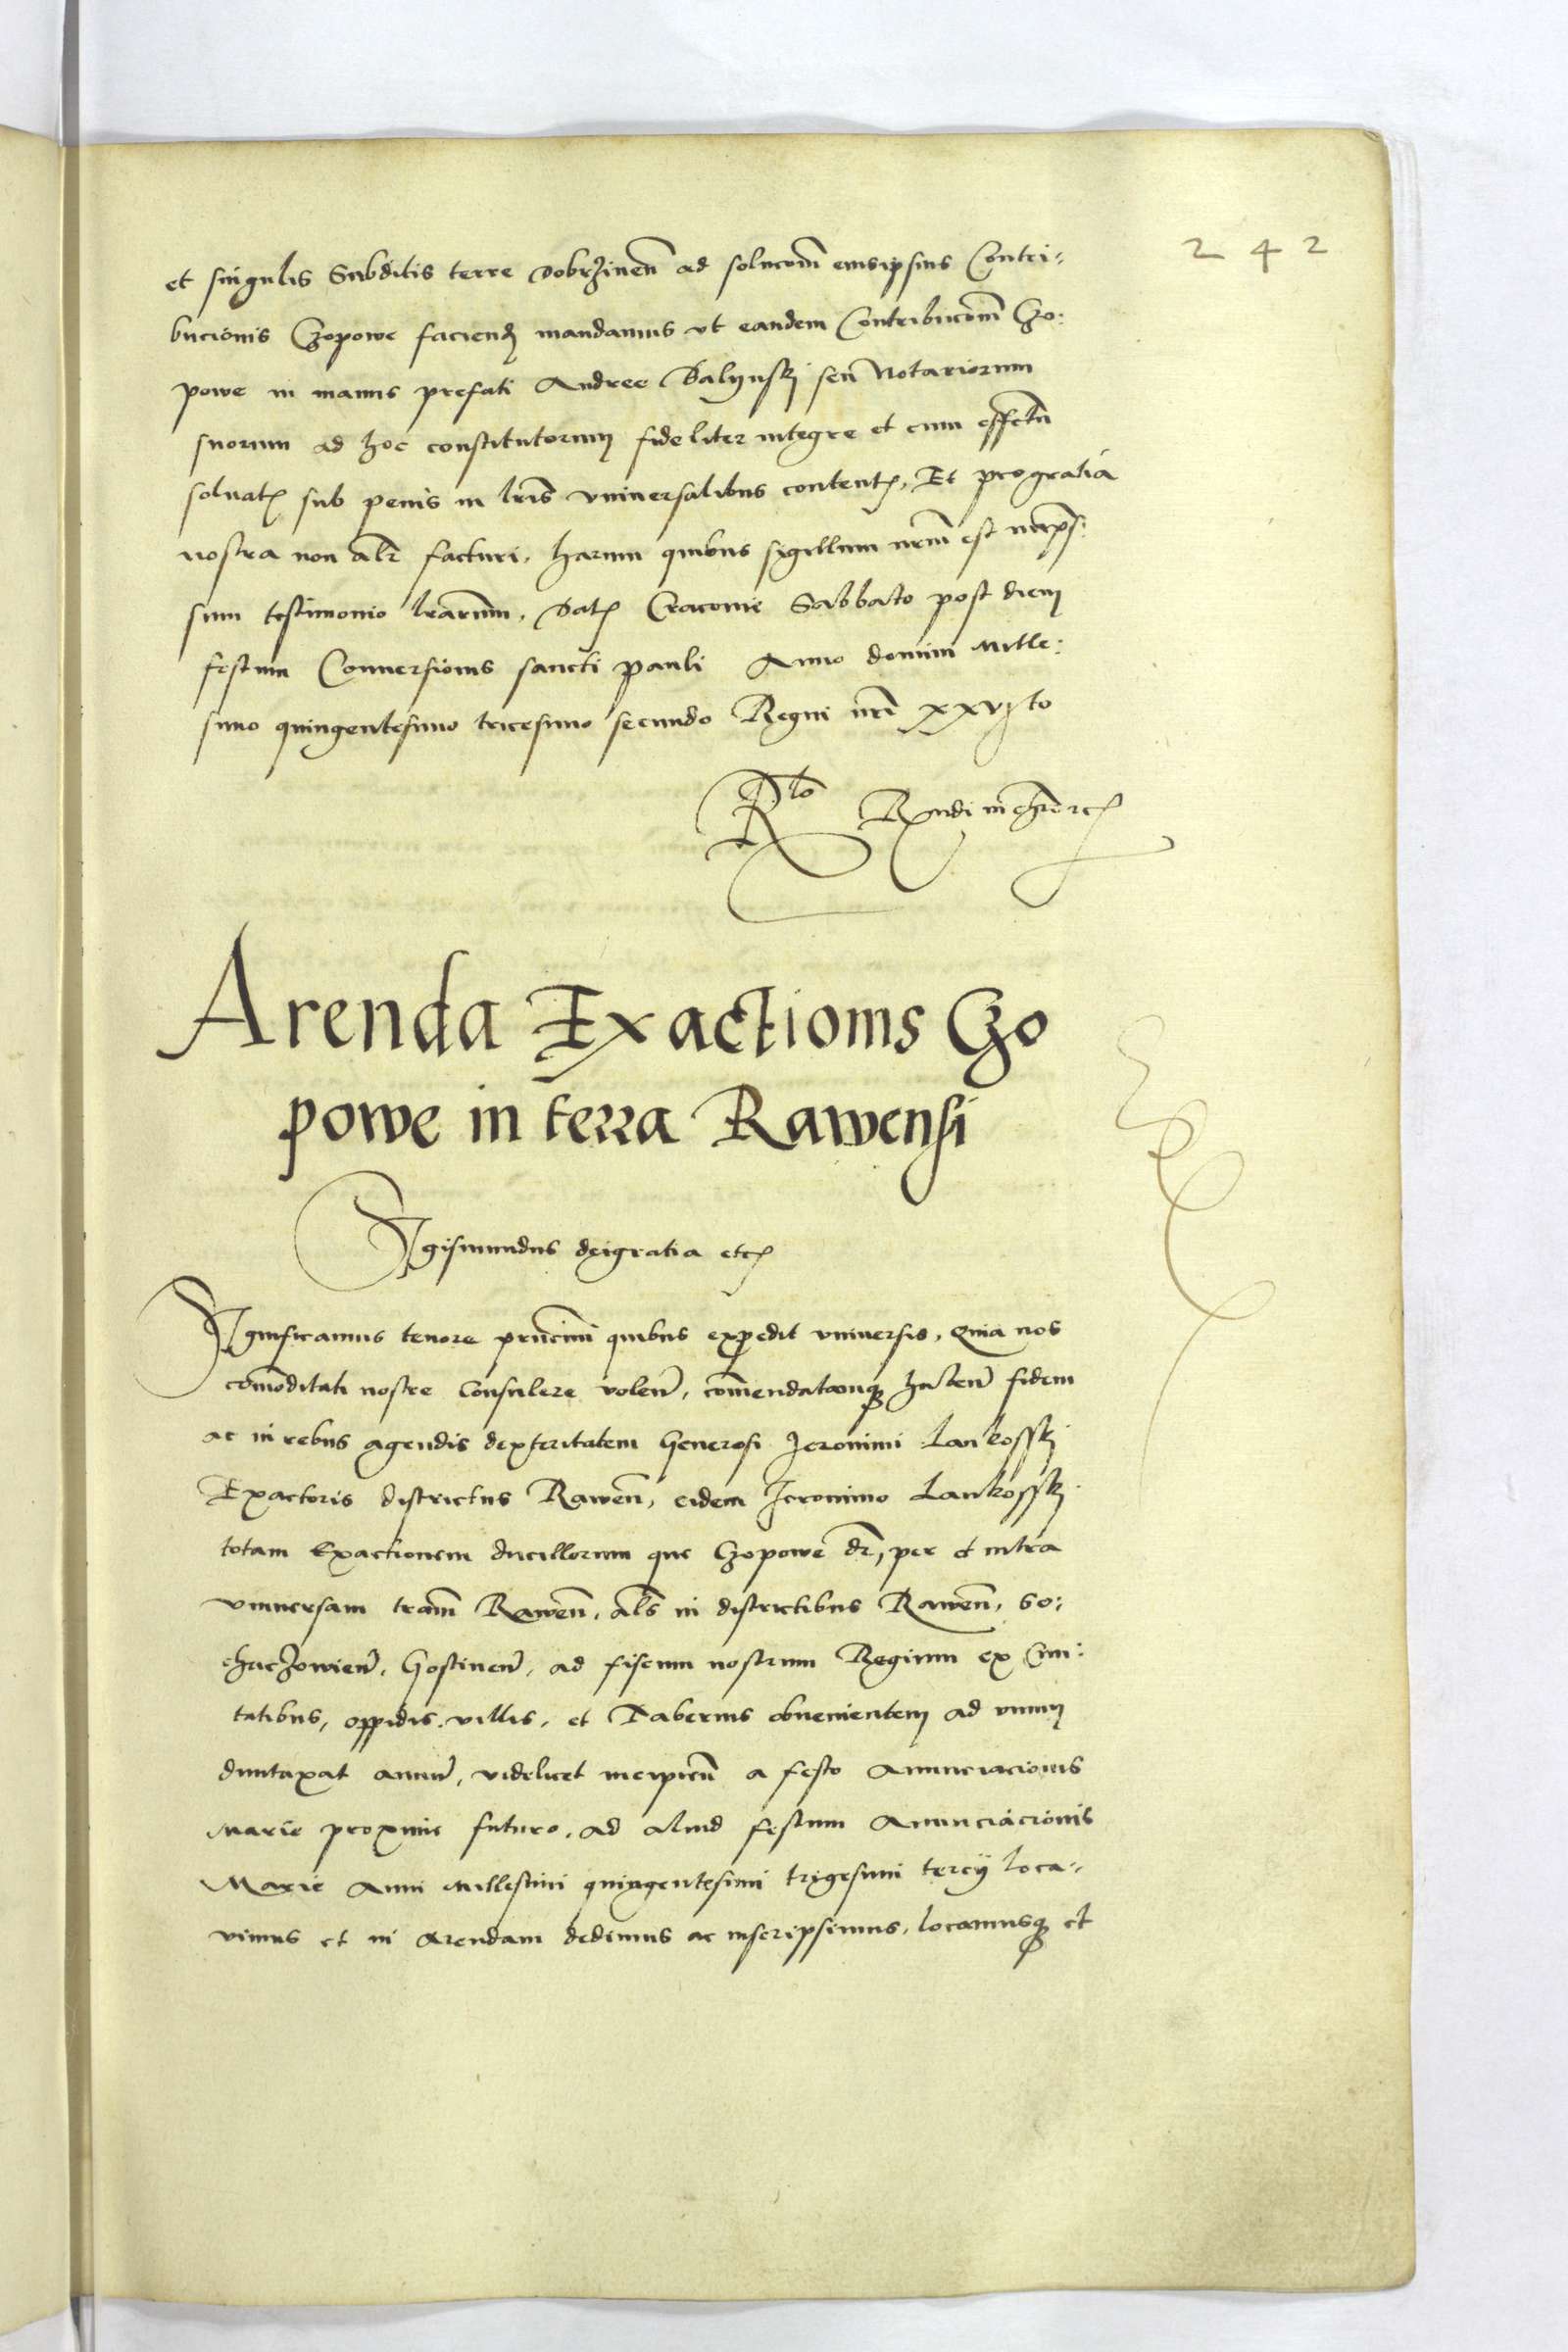 242
et singulis Subditis terre Dobrzinen̄ ad solucom̄ eiusipsius Contri:
bucionis Czopowe faciend mandamus vt eandem Contribucom̄ Czo:
powe in manus prefati Andree Dalynskj seu Notariorum
suorum ad hoc constitutorum fideliter integre et cum effctū
soluat sub penis in lr̄is vniversalibus content, Et pro gratia
nostra non alr̄ facturi, harum quibus sigillum nrm̄ est impres:
sum testimonio lrarum̄, Dat Cracovie Sabbato post diem
festum Conversionis sancti pauli Anno domini Mille:
simo quingentesimo tricesimo secundo Regni nrī xxvjto
Rlō Rndi
Arenda Exactionis Czo
powe in terra Rawensi
Sigismundus dei gratia etc
Significamus tenore prn̄cium quibus expedit vniversis, Quia nos
comōditati nostre Consulere volen̄, com̄endatamq hacten̄ fidem
ac in rebus agendis dexteritatem Generosi Jeronimi Lankosskj
Exactoris districtus Rawen̄, eidem Jeronimo Lankosskj
totam Exactionem ducillorum que Czopowe dr̄, per et intra
vniversam tram̄ Rawen̄, als̄ in districtibus Rawen̄, So:
chaczowien̄, Gostinen̄, ad fiscum nostrum Regium ex Civi:
tatibus, oppidis, villis, et Tabernis obvenientem ad vnum
duntaxat annū, videlicet incipien̄ a festo Anunciacionis
Marie proxime futuro, ad aliud festum Anunciacionis
Marie Anni Millesimi quingentesimi trigesimi tercij loca:
vimus et in Arendam dedimus ac inscripsimus, locamusq et